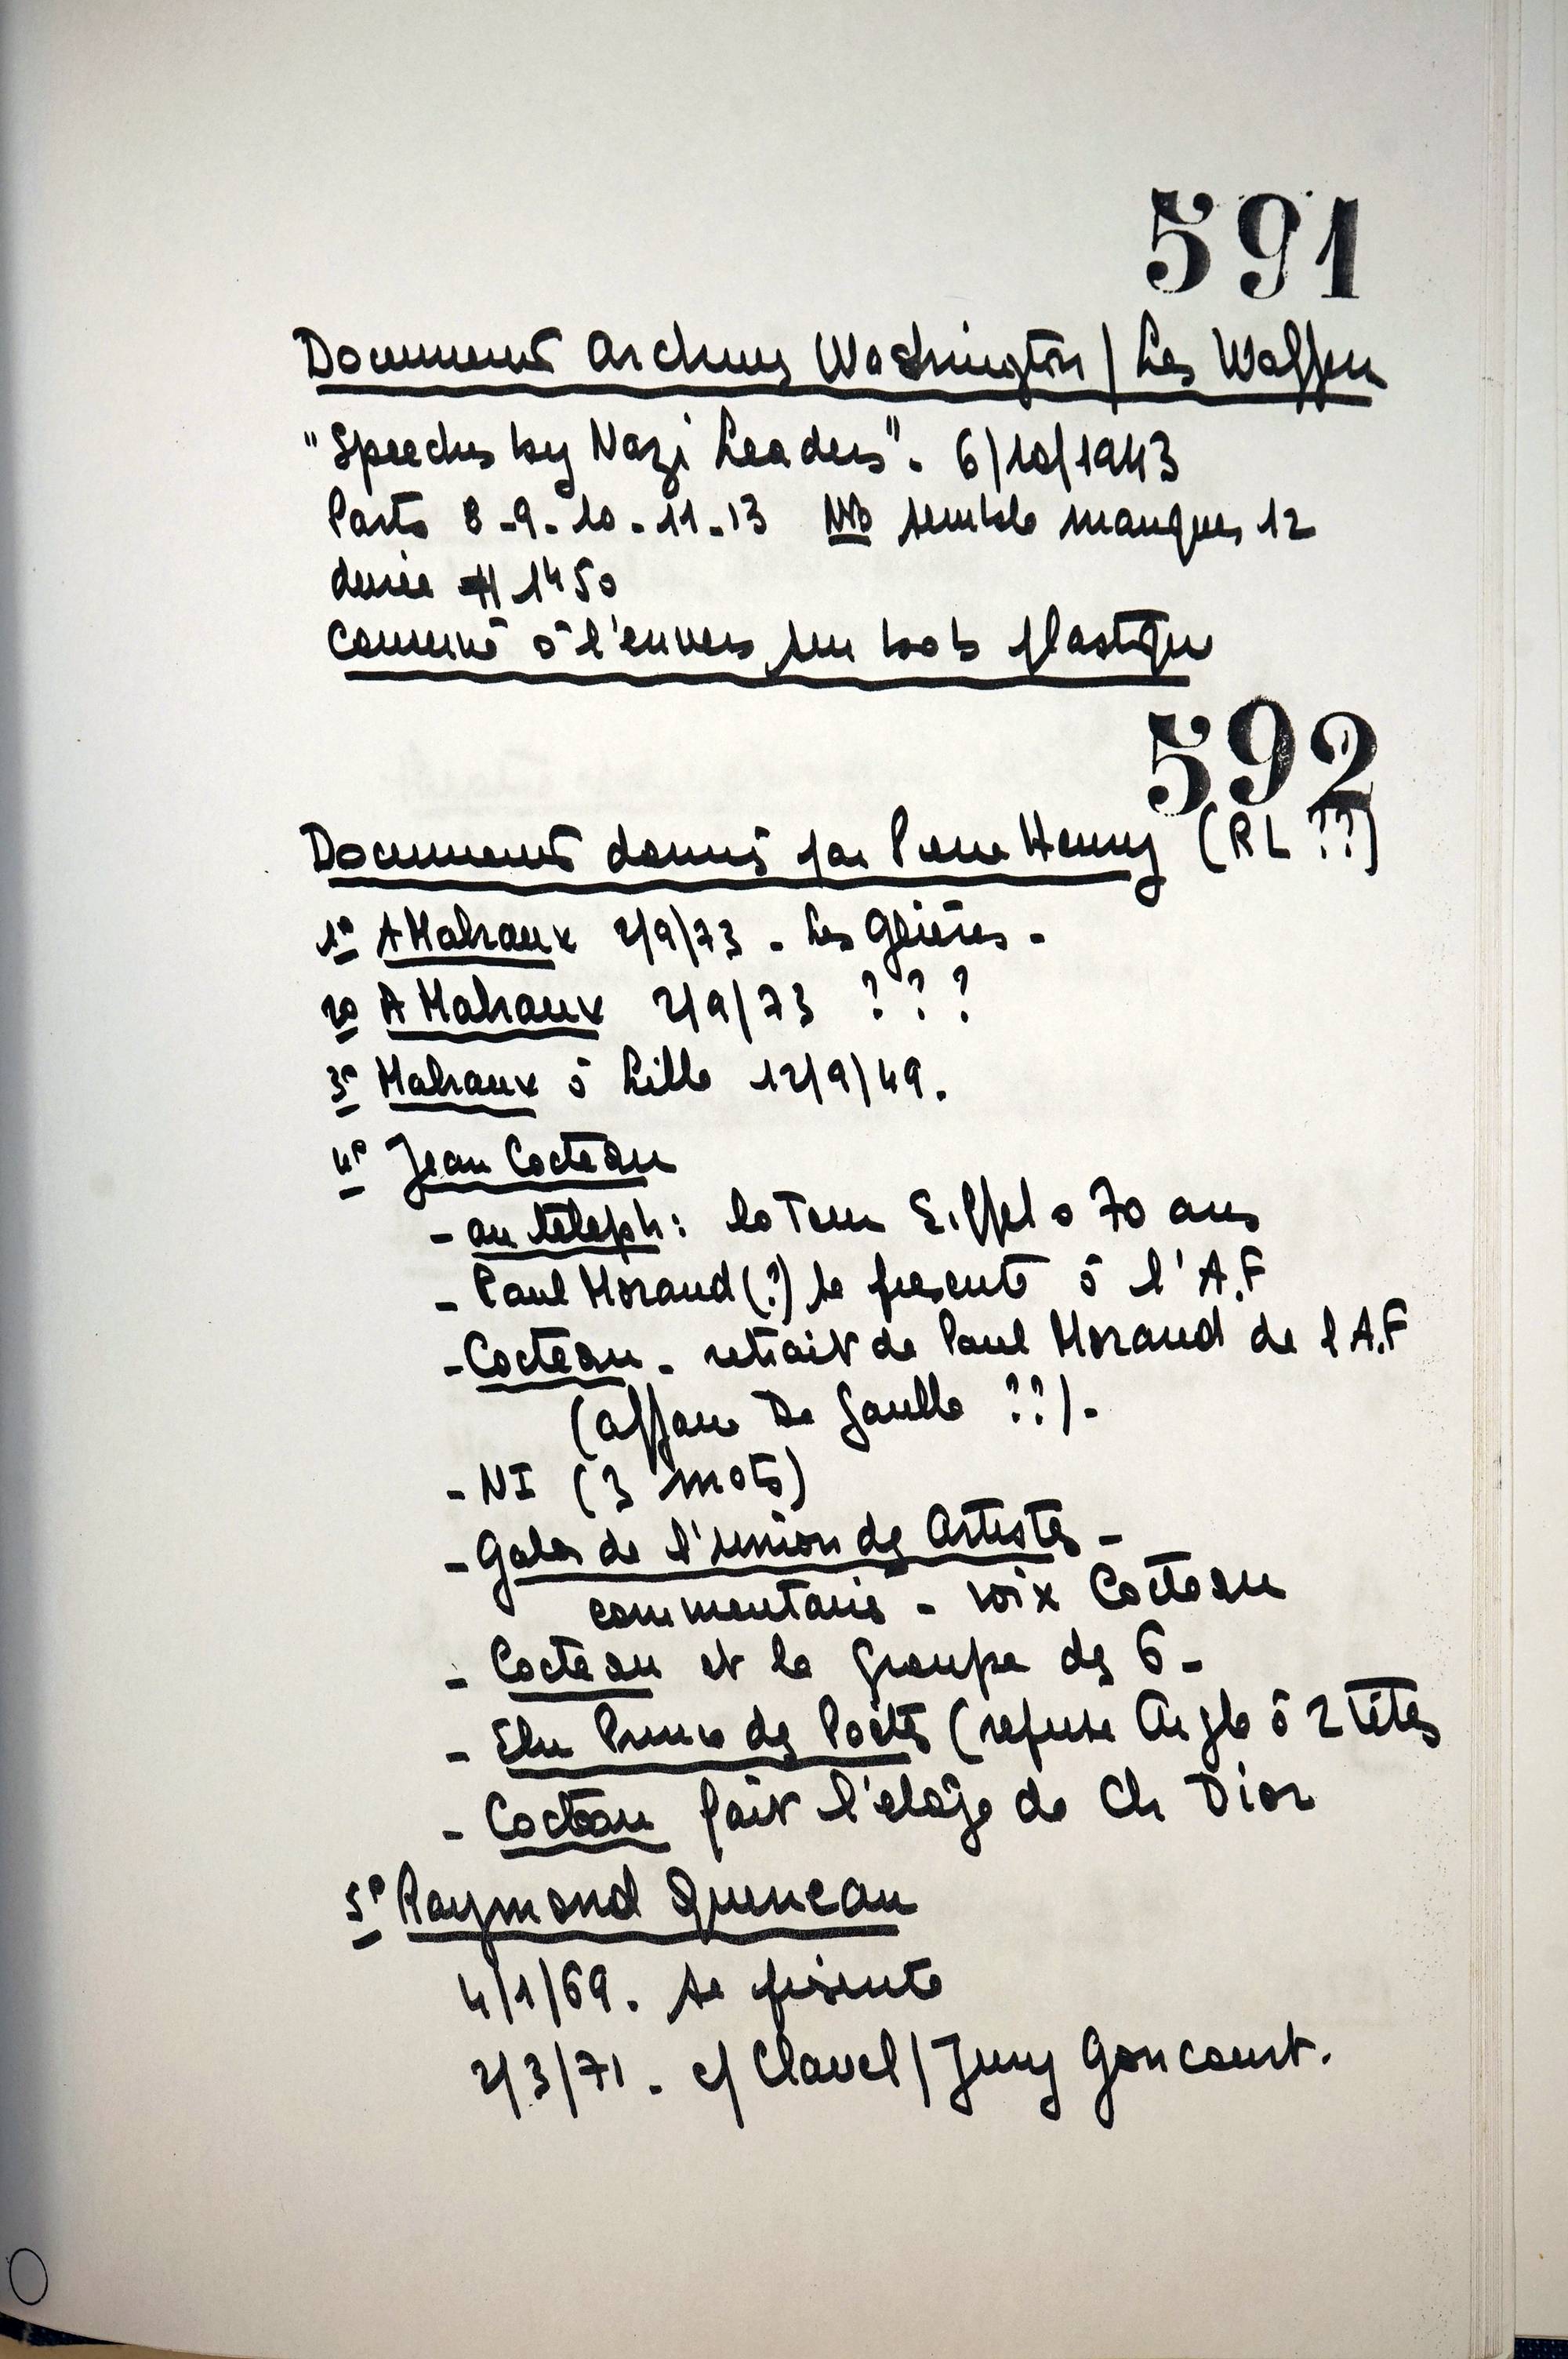 591
Document archives Washington / Les Waffen
"Speeches by Nazi Leaders". 6/10/1943
Parts 8-9-10-11-13 NB semble manquer 12
durée # 1h50
à l'envers sur bob plastique
592
Document donné par Pierre Henry (RL ??)
1° A Malraux 2/9/73 - Les Glières -
2° A Malraux 2/9/73 ? ? ?
3° Malraux à Lille 12/9/49.
4° Jean Cocteau
- au téléph : la Tour Eiffel a 70 ans
- Paul Morand (?) se présente à l'A.F
- Cocteau - retrait de Paul Morand de l A.F
(affaire De Gaulle ??) -
- NI (3 mots)
- Gala de l'union des Artistes -
commentaire - voix Cocteau
- Cocteau et le groupe des 6 -
- Elu Prince des Poètes (refuse Aigle à 2 Têtes
- Cocteau fait l'éloge de Ch Dior
5° Raymond Queneau
4/1/69. se présente
2/3/71 - c/ Clavel / Jury Goncourt.